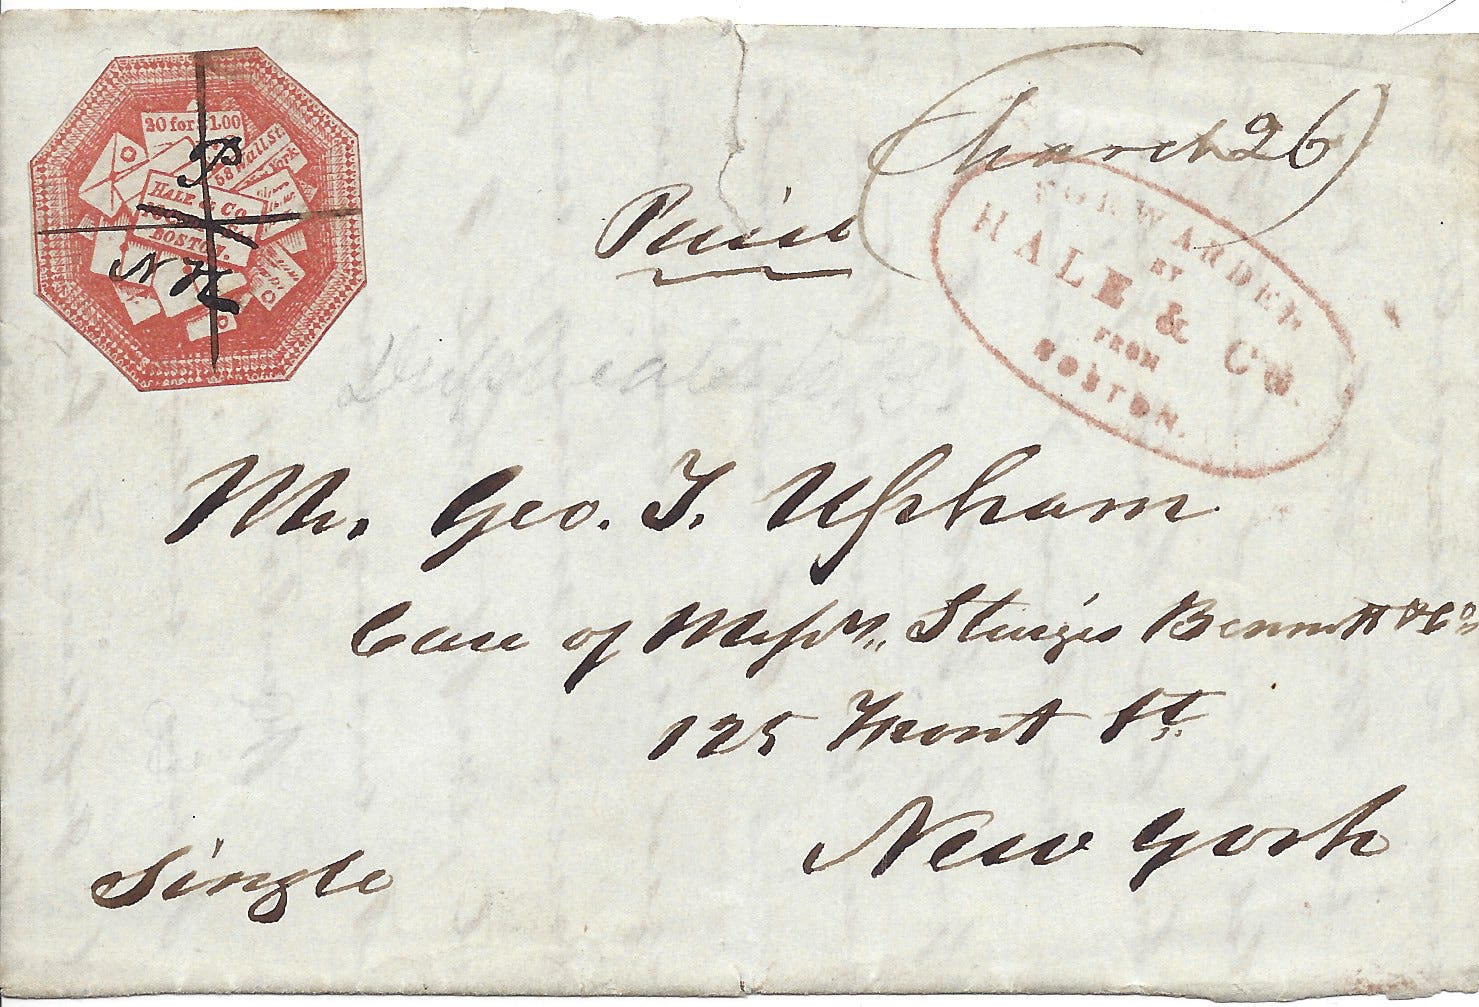 20 for $1.00
58 Wall St.
New York
HALE & Co.
BOSTON.
P
N H
Paid
(March 26)
FORWARDED
BY
HALE & Co.
FROM
BOSTON.
Mr. Geo. T. Upham
Care of Messrs. Sturges Bennett & Co
125 Front St.
New York
Single